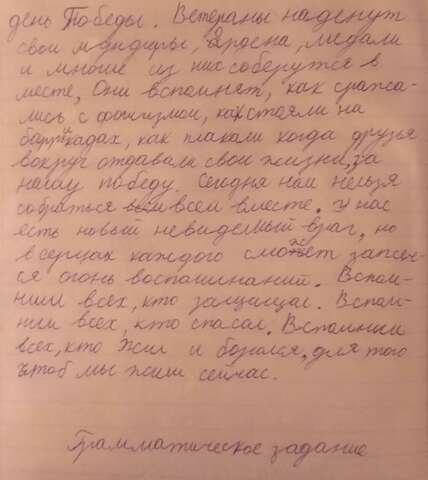 день Победы. Ветераны наденут
свои мундиры, ордена, медали
и многие из них соберутся в
месте, Они вспомнят, как сража-
лись с фашизмом, как стояли на
баррикадах, как плакали когда друзья
вокруг отдавали свои жизни, за
нашу победу. Сегодня нам нельзя
собраться всем вместе. У нас
есть новый невидемый враг, но
в серцах каждого сможет зажеч-
ся огонь воспоминаний. Вспом-
ним всех, кто защищал. Вспом-
ним всех, кто спасал. Вспомним
всех, кто жил и боролся, для того
чтоб мы жили сейчас.
Грамматическое задание